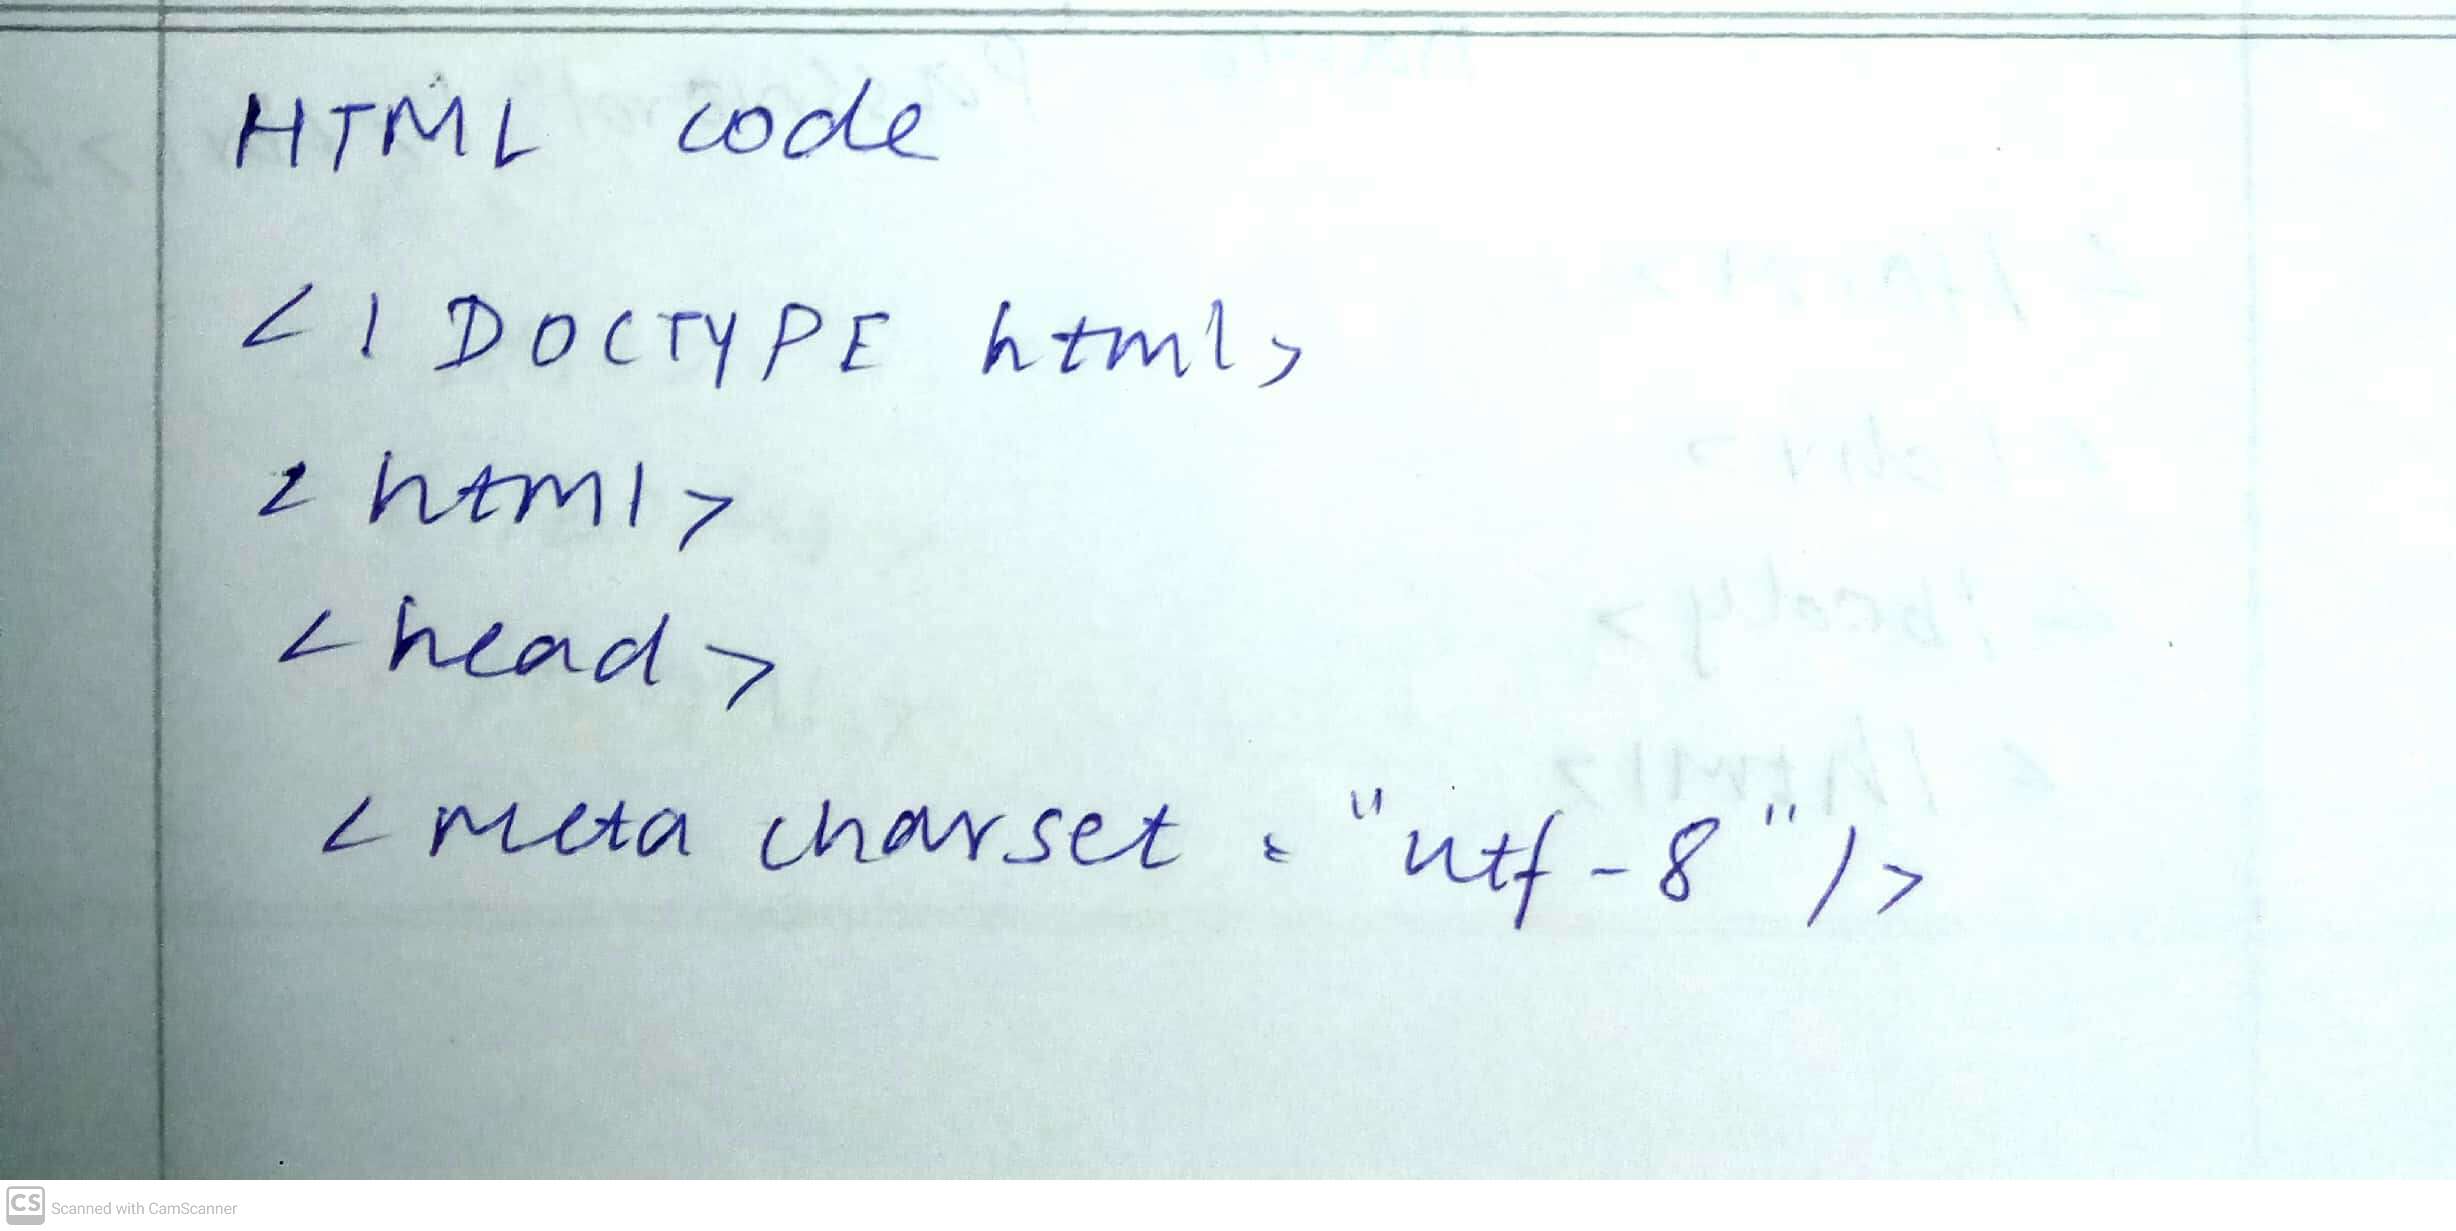 HTML code
<! DOCTYPE html>
< html>
<head>
<meta charset = "utf-8" />
CS Scanned with CamScanner